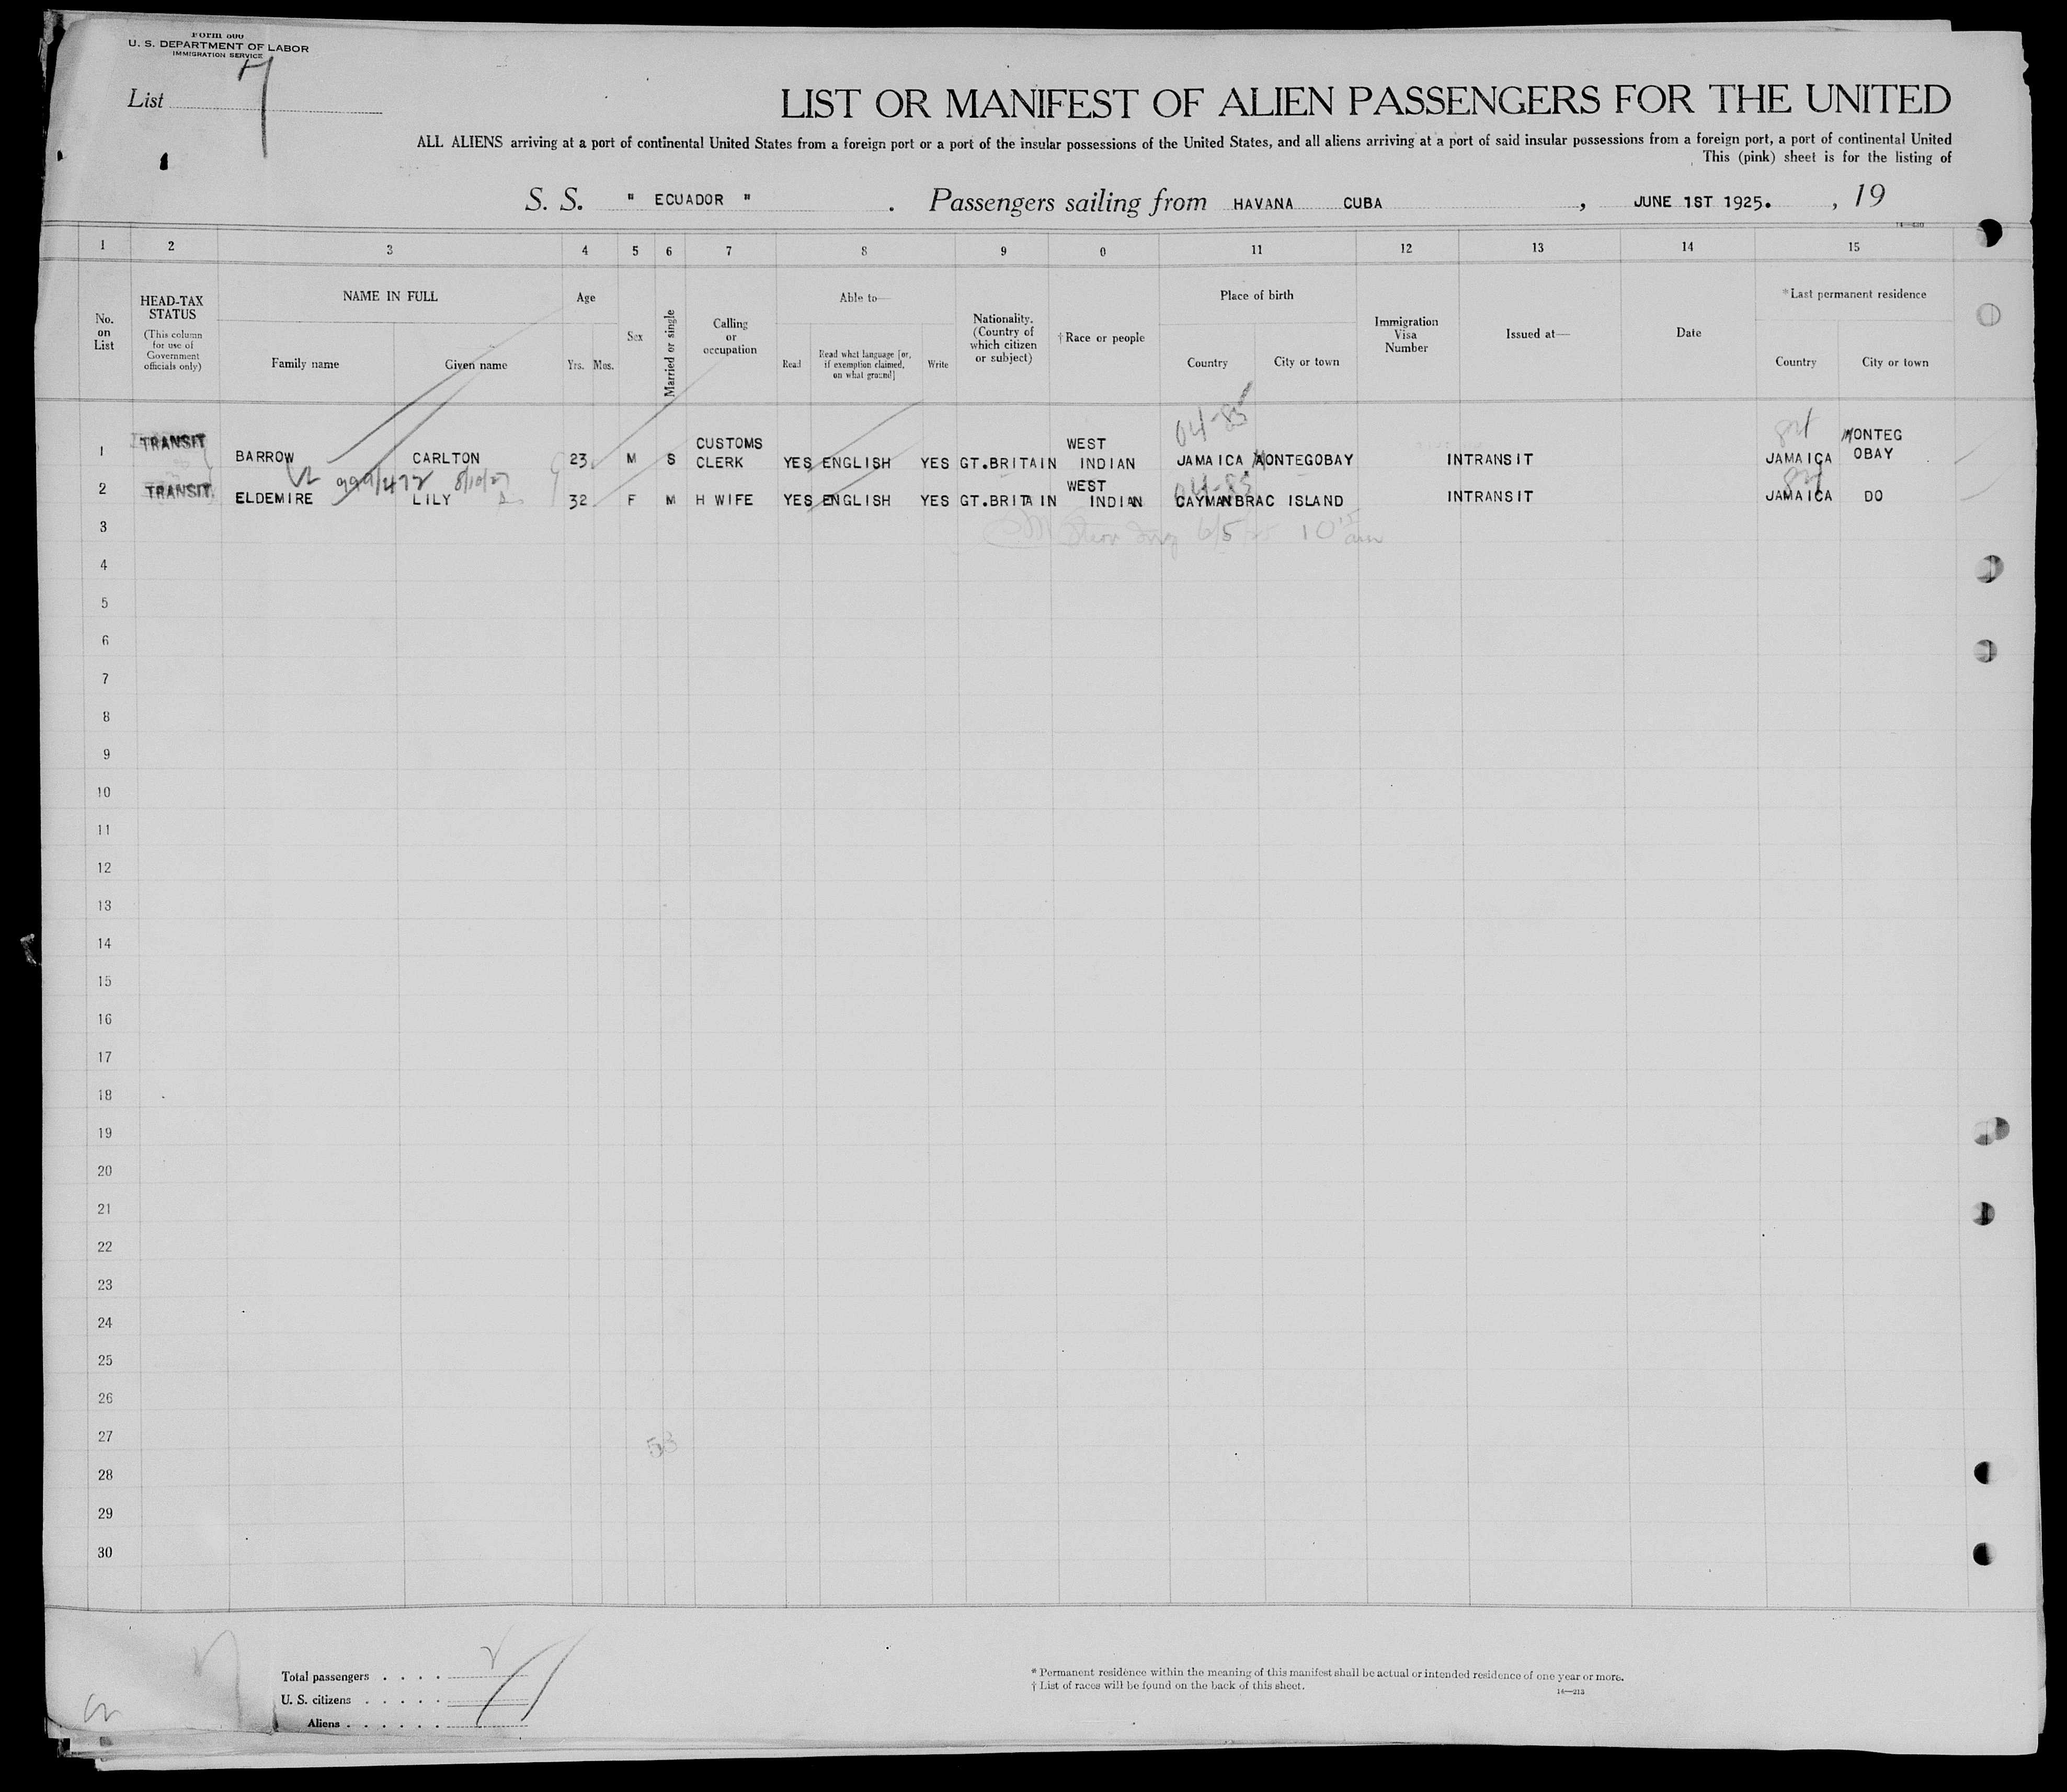 Form 500
U. S. DEPARTMENT OF LABOR
IMMIGRATION SERVICE
List 7
LIST OR MANIFEST OF ALIEN PASSENGERS FOR THE UNITED
ALL ALIENS arriving at a port of continental United States from a foreign port or a port of the insular possessions of the United States, and all aliens arriving at a port of said insular possessions from a foreign port, a port of continental United
This (pink) sheet is for the listing of
S. S. " ECUADOR " . Passengers sailing from HAVANA CUBA , JUNE 1ST 1925. , 19
1 2 3 4 5 6 7 8 9 0 11 12 13 14 15
No. on List
HEAD-TAX STATUS
(This column for use of Government officials only)
NAME IN FULL
Family name Given name
Age
Yrs. Mos.
Sex
Married or single
Calling or occupation
Able to—
Read
Read what language [or, if exemption claimed, on what ground]
Write
Nationality. (Country of which citizen or subject)
†Race or people
Place of birth
Country City or town
Immigration Visa Number
Issued at—
Date
*Last permanent residence
Country City or town
04-85
1 TRANSIT BARROW CARLTON 23 M S CUSTOMS CLERK YES ENGLISH YES GT.BRITAIN WEST INDIAN JAMAICA MONTEGOBAY INTRANSIT JAMAICA MONTEG OBAY
8/10/27
04-85
2 TRANSIT. ELDEMIRE LILY 32 F M H WIFE YES ENGLISH YES GT.BRITAIN WEST INDIAN CAYMANBRAC ISLAND INTRANSIT JAMAICA DO
3
6/5
4
5
6
7
8
9
10
11
12
13
14
15
16
17
18
19
20
21
22
23
24
25
26
27
28
29
30
Total passengers . . . .
U. S. citizens . . . . .
Aliens . . . . . .
* Permanent residence within the meaning of this manifest shall be actual or intended residence of one year or more.
† List of races will be found on the back of this sheet.
14—213